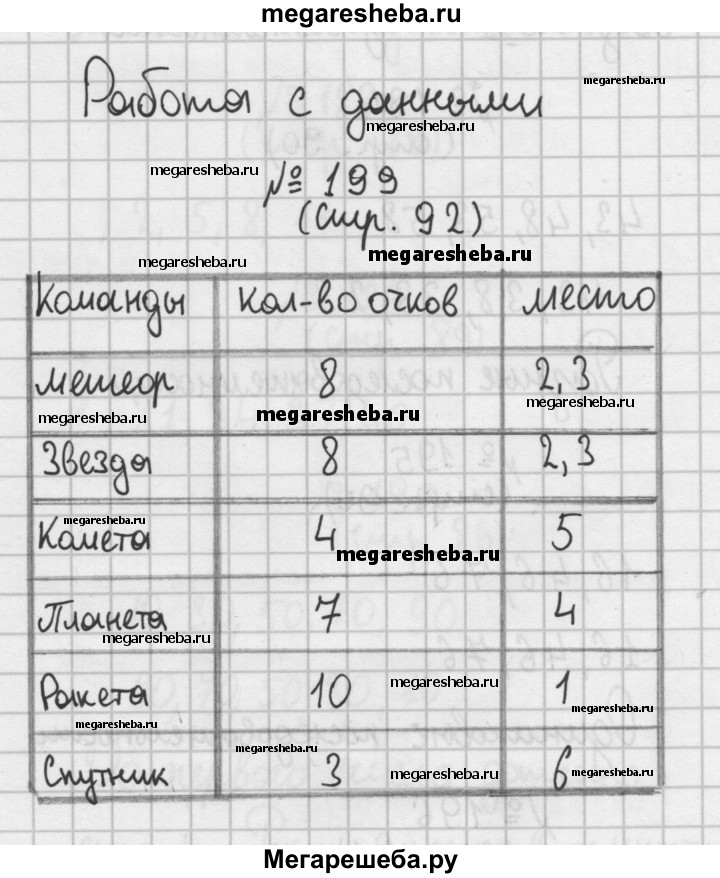 megaresheba.ru
megaresheba.ru
Работа с данными
megaresheba.ru
megaresheba.ru
№ 199
(Стр. 92)
megaresheba.ru
megaresheba.ru
Команды кол-во очков место
метеор 8 2,3
megaresheba.ru megaresheba.ru megaresheba.ru
Звезда 8 2,3
megaresheba.ru
Комета 4 5
megaresheba.ru
Планета 7 4
megaresheba.ru
Ракета 10 megaresheba.ru 1
megaresheba.ru megaresheba.ru
megaresheba.ru
Спутник 3 megaresheba.ru 6 megaresheba.ru
Мегарешеба.ру